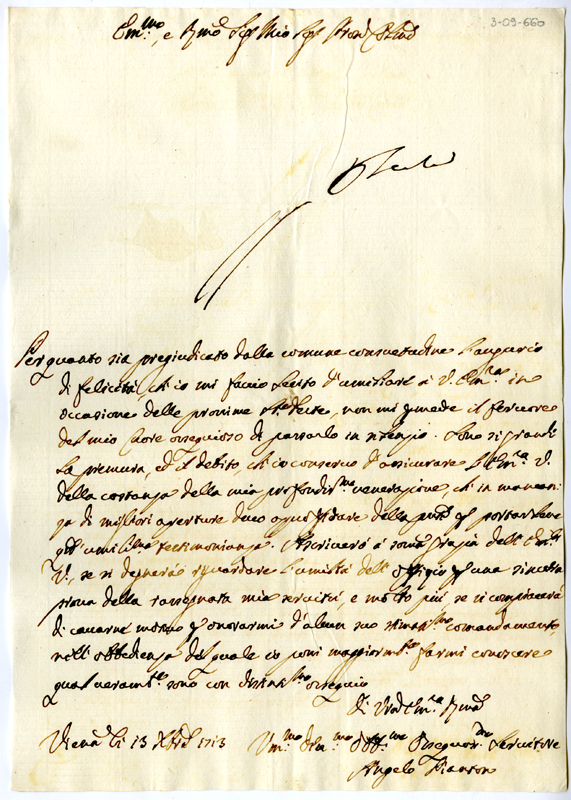 3-09-660
Em.mo, e R.mo Sig.r Mio Sig.r Pron.
Per quanto sia pregiudicato dalla comune consuetudine l'augurio
di felicità ch'io mi faccio lecito d'umiliare à V. Em.za in
occasione delle prossime S. Feste, non mi permette il fervore
del mio Cuore ossequioso di passarlo in silenzio. Sono si grandi
la premura, ed il debito ch'io conservo d'assicurare l'Em.za V.
della costanza della mia profondiss.ma venerazione, ch'in mancan-
za di migliori aperture devo approfittare della pnte per portarlene
quest' umiliss.ma testimonianza. Ascriverò à somma grazia dell' Em.za
V., se si degnarà riguardare l'umiltà dell' offizio per una sincera
prova della rassegnata mia servitù, e molto più se si compiacerà
di cavarne motivo per onorarmi d'alcun suo stimatiss.mo comandamento,
nell' obbedienza del quale io possi maggiorm.te farmi conoscere
qual veram.te sono con distintiss.mo ossequio
Di Vra Em.za R.ma
Viena li 13 Xbre 1713
Vm.mo Dev.mo Obb.mo Ossequios.mo Servitore
Angelo